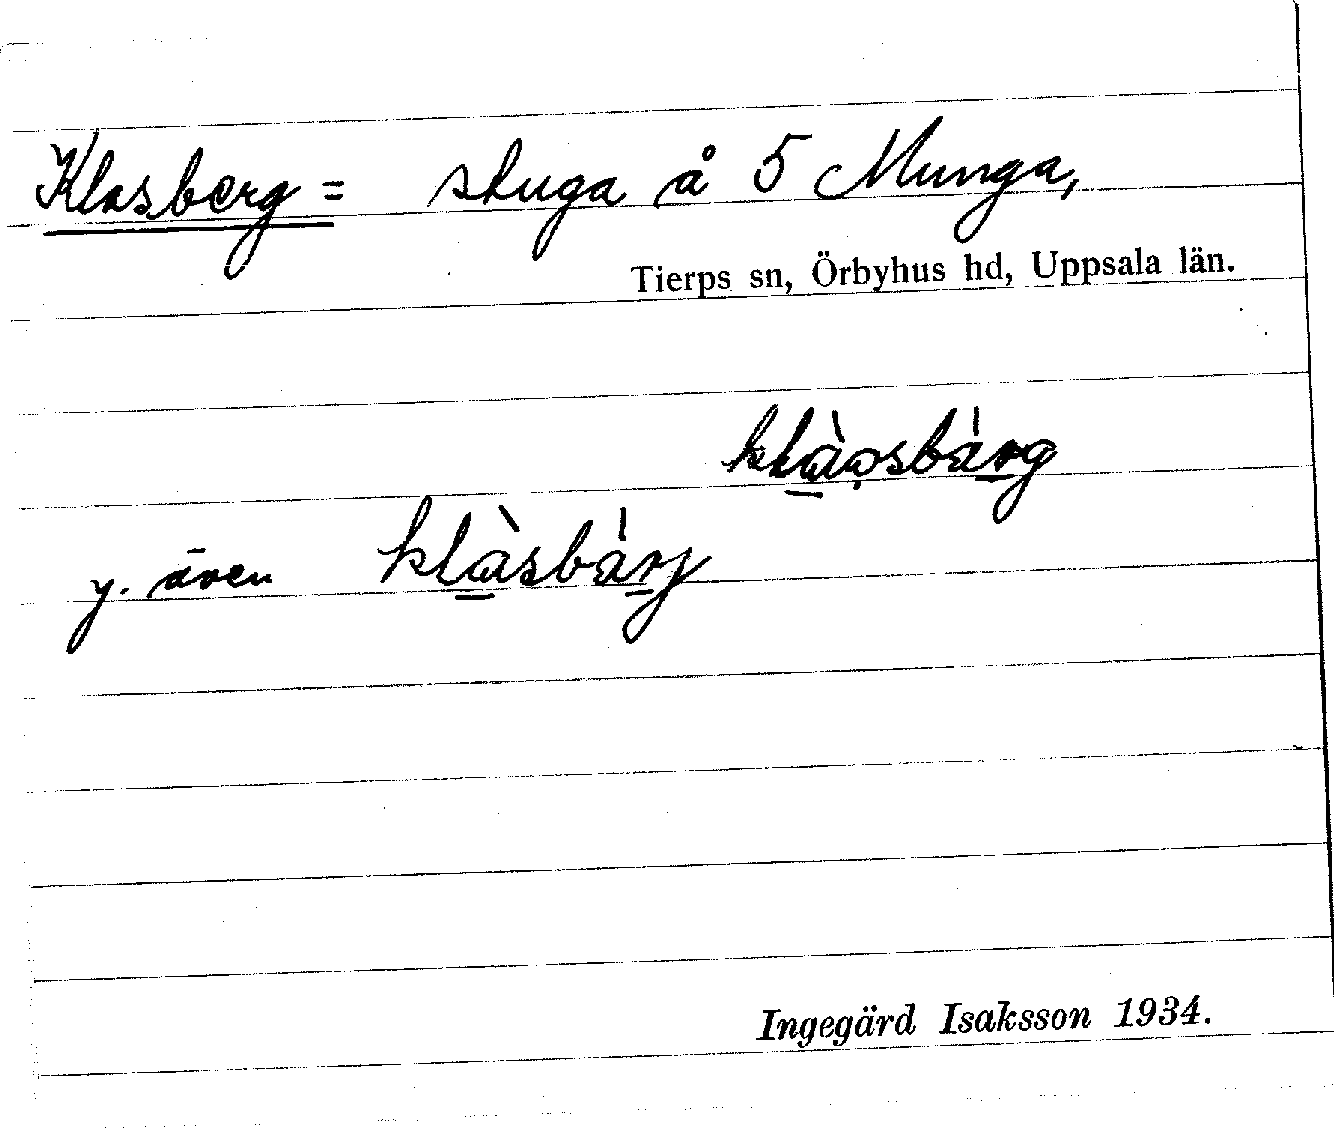 Klasberg = stuga å 5 Munga,
Tierps sn, Örbyhus hd, Uppsala län.
klàọsbá̱rg
y. även klàsbá̱rj
Ingegärd Isaksson 1934.